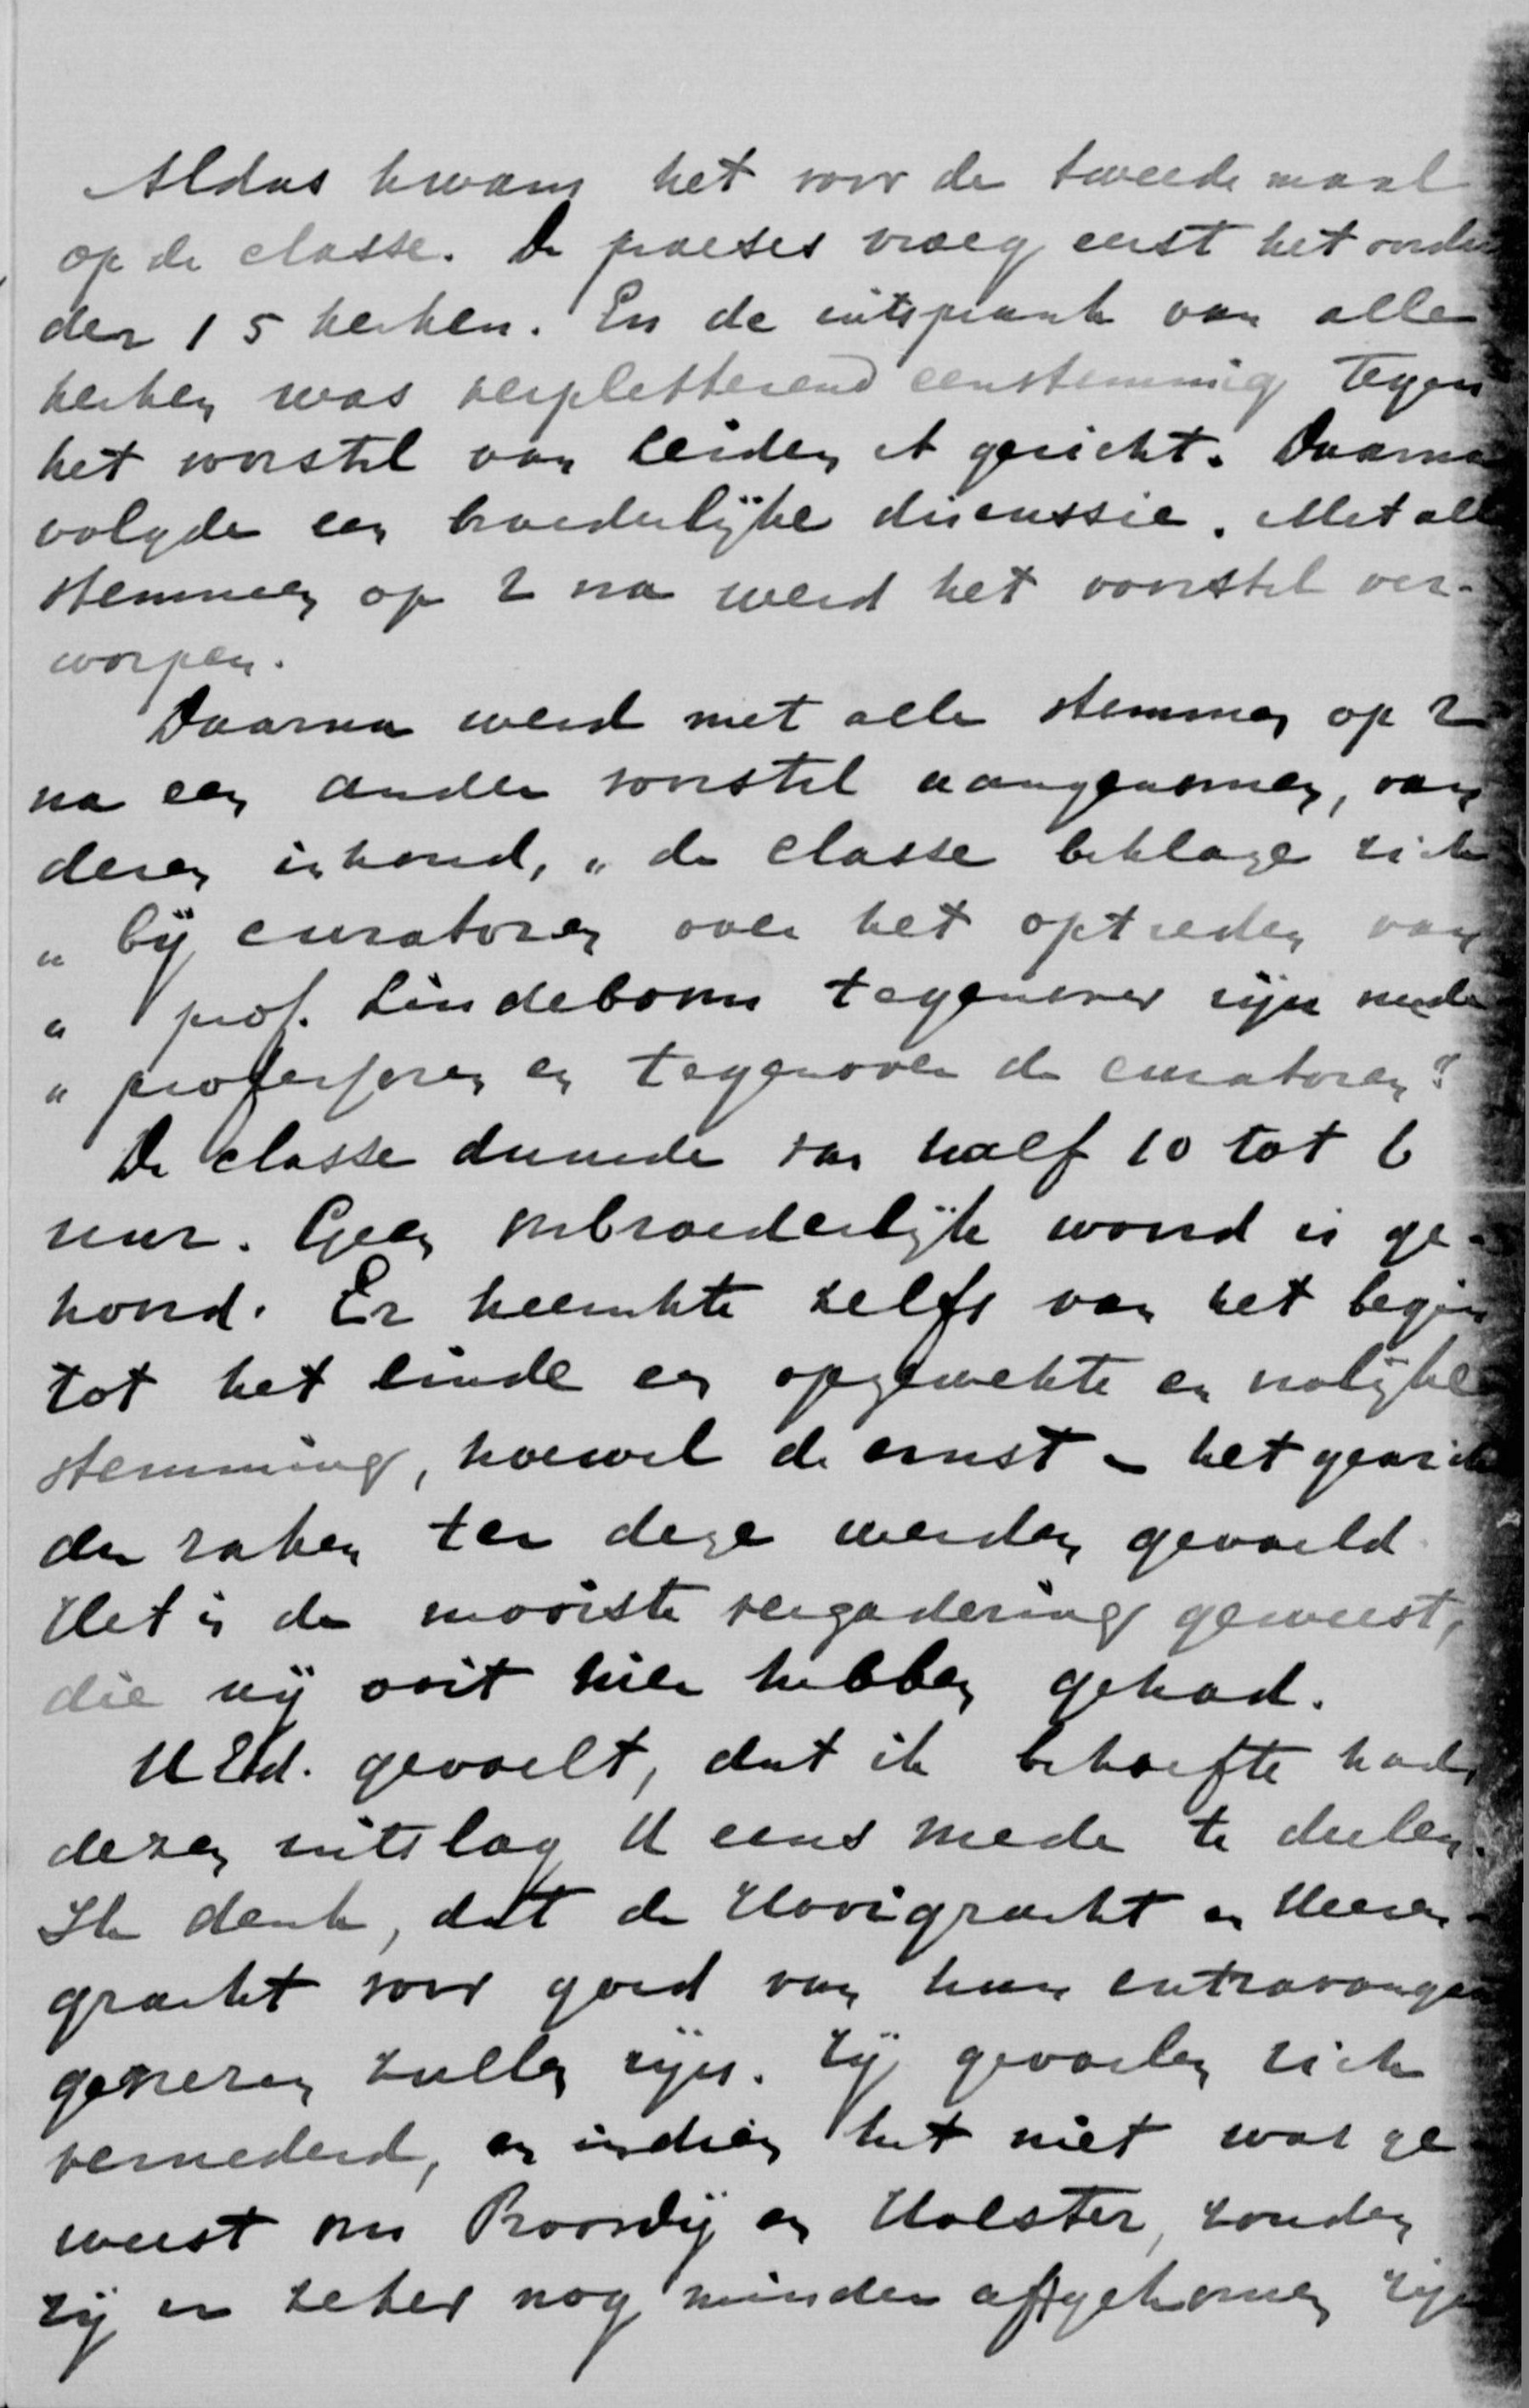 Aldus kwam het voor de tweede maal
op de classe. De praeses vroeg eerst het oordeel
der 15 kerken. En de uitspraak van alle
kerken was verpletterend eenstemmig tegen
het voorstel van Leiden A gericht. Daarna
volgde een broederlijke discussie. Met alle
stemmen op 2 na werd het voorstel ver-
worpen.
Daarna werd met alle stemmen op 2
na een ander voorstel aangenomen, van
dezen inhoud, „de classe beklage zich
„ bij curatoren over het optreden van
„ prof. Lindeboom tegenover zijn mede
„ professoren en tegenover de curatoren"
De classe duurde van half 10 tot 6
uur. Geen onbroederlijk woord is ge-
hoord. Er heerschte zelfs van het begin
tot het einde een opgewekte en vrolijke
stemming, hoewel de ernst en het gewicht
der zaken ter dege werden gevoeld.
Het is de mooiste vergadering geweest,
die wij ooit hier hebben gehad.
UEd. gevoelt, dat ik behoefte had,
dezen uitslag U eens mede te deelen.
Ik denk, dat de Hooigracht en Heeren-
gracht voor goed van hun extravangen
genezen zullen zijn. Zij gevoelen zich
vernederd, en indien het niet was ge
weest om Boordij en Holster, zouden
zij er zeker nog minder afgekomen zijn